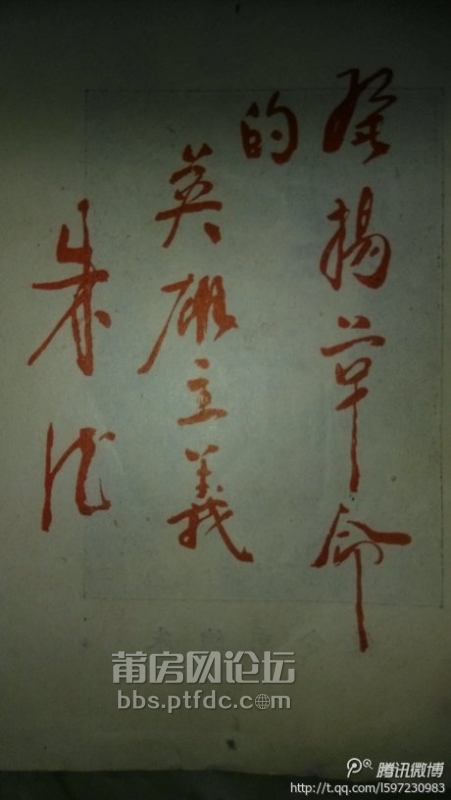 發揚革命
的
英雄主義
朱德
莆房网论坛
bbs.ptfdc.com
腾讯微博
http://t.qq.com/l597230983